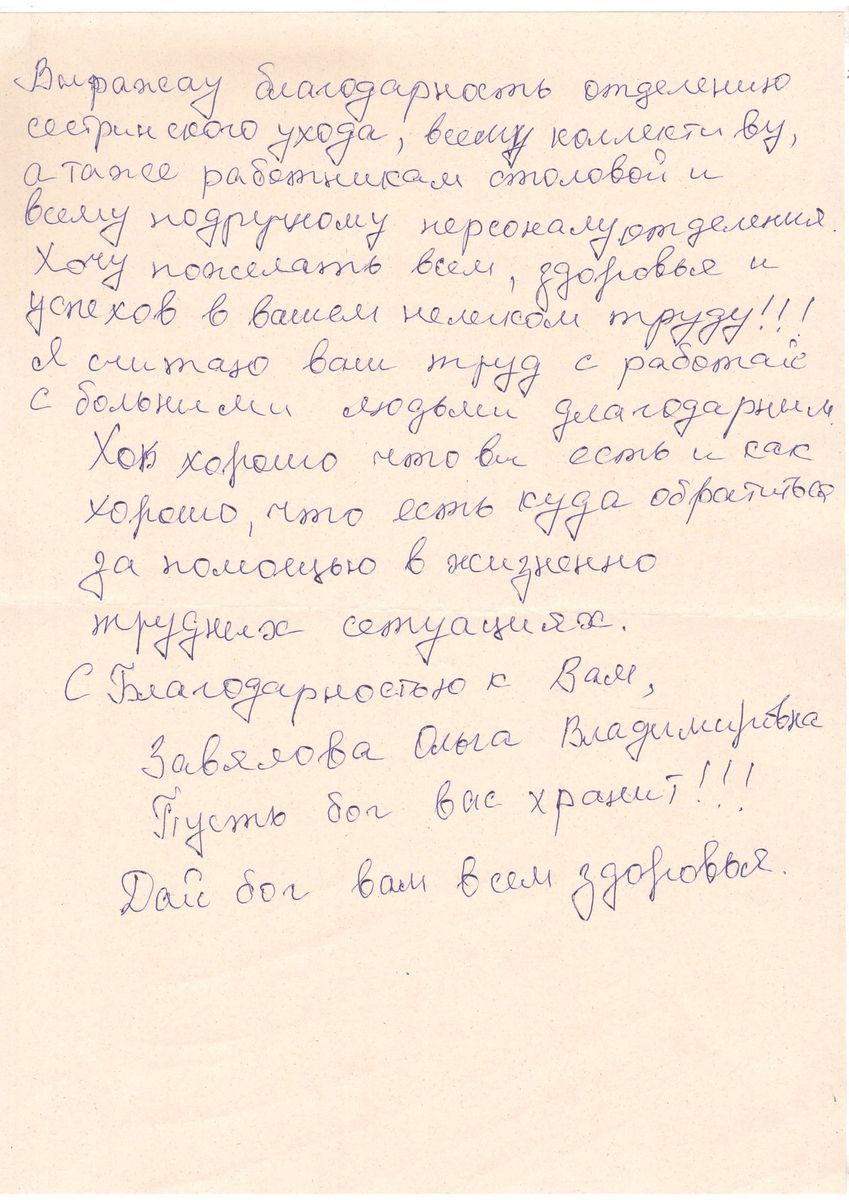 Выражау благодарность отделению
сестринского ухода, всему коллективу,
а также работникам столовой и
всему подручному персоналу, отделения.
Хочу пожелать всем, здоровья и
успехов в вашем нелегком труду!!!
Я считаю ваш труд с работай
с больними людьми благодарним.
Как хорошо что ви есть и как
хорошо, что есть куда обратиться
за помощью в жизненно
трудних сетуациях.
С Благодарностью к Вам,
Завялова Ольга Владимировна
Пусть бог вас хранит!!!
Дай бог вам всем здоровья.